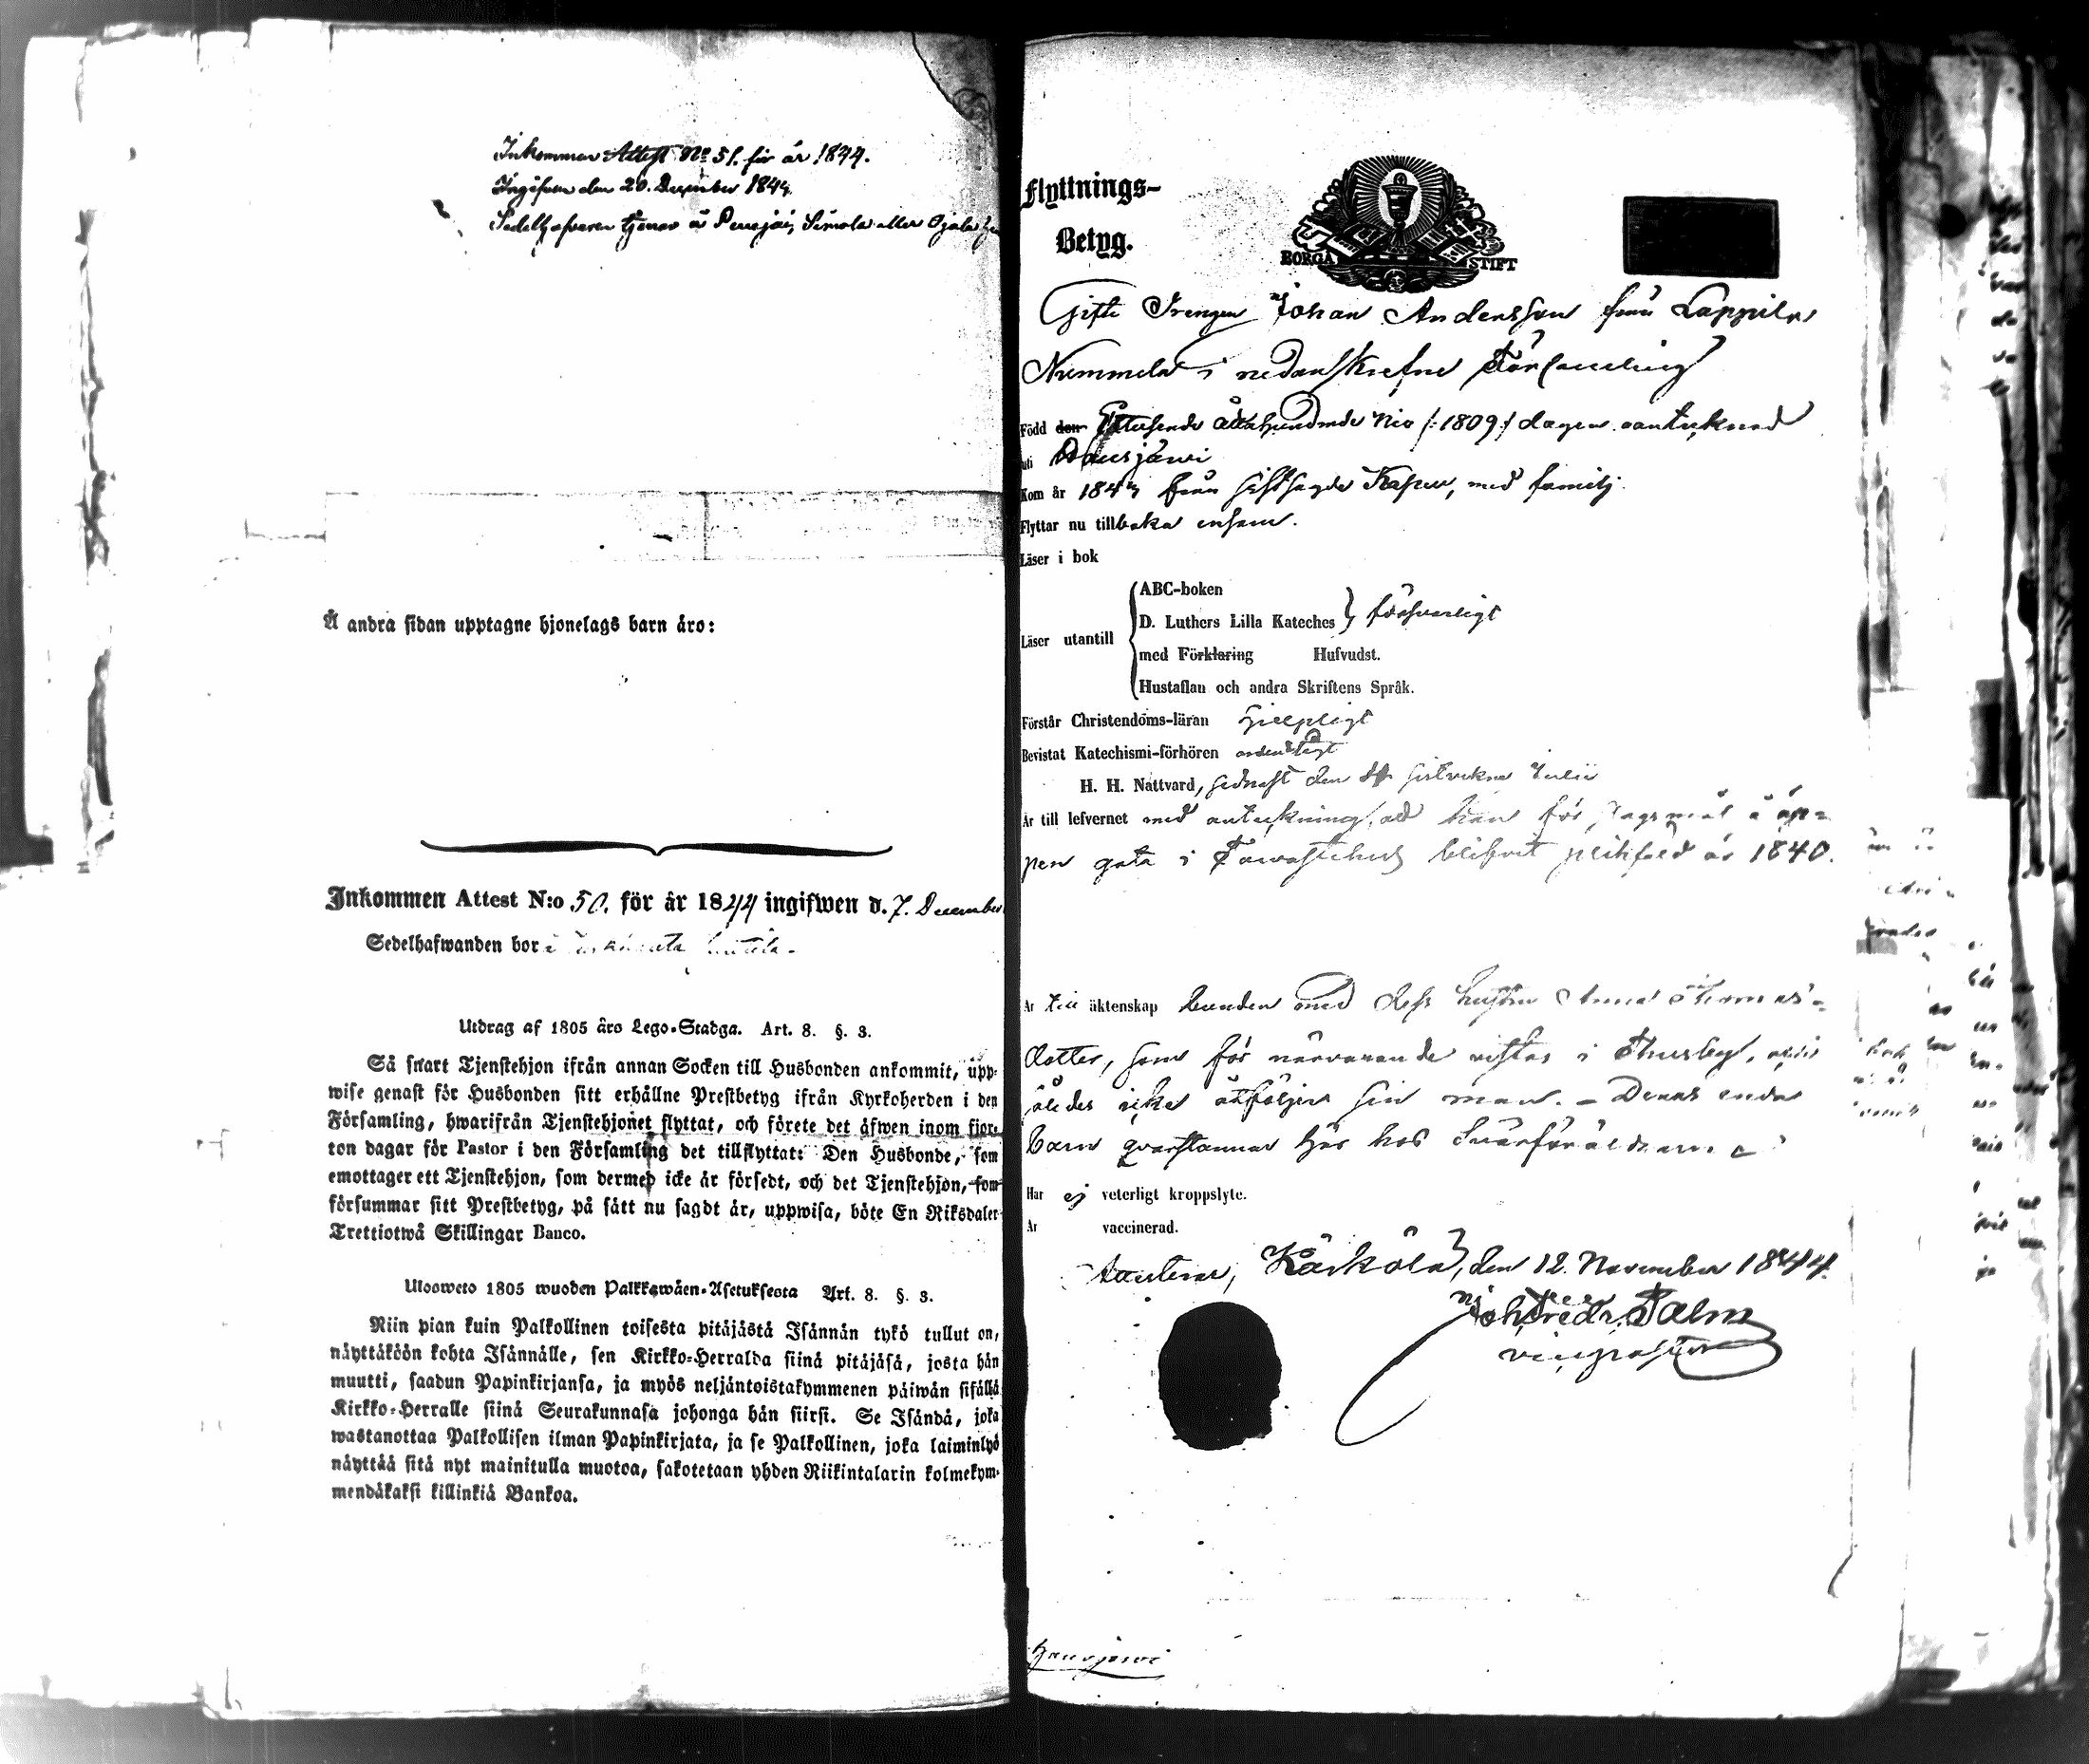 Inkommen Attest No 51. för år 1844.
Ingifven den 20. December 1844.
Sedelhafvaren tjenar å Simola eller Ojala
Å andra sidan upptagne hjonelags barn äro:
Inkommen Attest N:o 50. för år 1844 ingifwen d. 7. December
Sedelhafwanden bor i
Utdrag af 1805 års Lego-Stadga. Art. 8. §. 3.
Så snart Tjenstehjon ifrån annan Socken till Husbonden ankommit, upp-
wise genast för Husbonden sitt erhållne Prestbetyg ifrån Kyrkoherden i den
Församling, hwarifrån Tjenstehjonet flyttat, och förete det äfwen inom fjor-
ton dagar för Pastor i den Församling det tillflyttat: Den Husbonde, som
emottager ett Tjenstehjon, som dermed icke är försedt, och det Tjenstehjon, som
försummar sitt Prestbetyg, på sätt nu sagdt är, uppwisa, böte En Riksdaler
Trettiotwå Skillingar Banco.
Ulosweto 1805 wuoden Palkkawäen-Asetuksesta Art. 8. §. 3.
Niin pian kuin Palkollinen toisesta pitäjästä Isännän tykö tullut on,
näyttäköön kohta Isännälle, sen Kirkko-Herralda siinä pitäjäsä, josta hän
muutti, saadun Papinkirjansa, ja myös neljäntoistakymmenen päiwän sisällä
Kirkko-Herralle siinä Seurakunnasa johonga hän siirsi. Se Isändä, joka
wastanottaa Palkollisen ilman Papinkirjata, ja se Palkollinen, joka laiminlyö
näyttää sitä nyt mainitulla muotoa, sakotetaan yhden Riikintalarin kolmekym-
mendäkaksi killinkiä Bankoa.
Flyttnings-
Betyg.
BORGÅ STIFT
Gifte Drengen Johan Andersson från Lappila
Nummela i nedanskrefne Församling
Född den Ettusende åttahundrade Nio /:1809:/ dagen oantecknad
uti Hausjärvi
Kom år 184 från sistsagde med familj.
Flyttar nu tillbaka ensam.
Läser i bok
ABC-boken
D. Luthers Lilla Kateches försvarligt
Läser utantill
med Förklaring Hufvudst.
Hustaflan och andra Skriftens Språk.
Förstår Christendoms-läran hjelpligt
Bevistat Katechismi-förhören ordentligt
H. H. Nattvard, sednast den sistvekne Julii
Är till lefvernet med anteckning, att han för slagsmål å öp-
pen gata i Tavastehus blifvit pliktfäld år 1840.
Är till äktenskap bunden med dess hustru Anna Thomas-
dotter, som för närvarande vistas i Thusby,
således icke åtföljer sin man. - Deras enda
barn qvarstannar här hos Svärföräldrarne
Har ej veterligt kroppslyte.
Är vaccinerad.
Attesterar, Kärkölä, den 12. November 1844.
Joh. Fredr. Palm
vicepastor
Hausjärvi